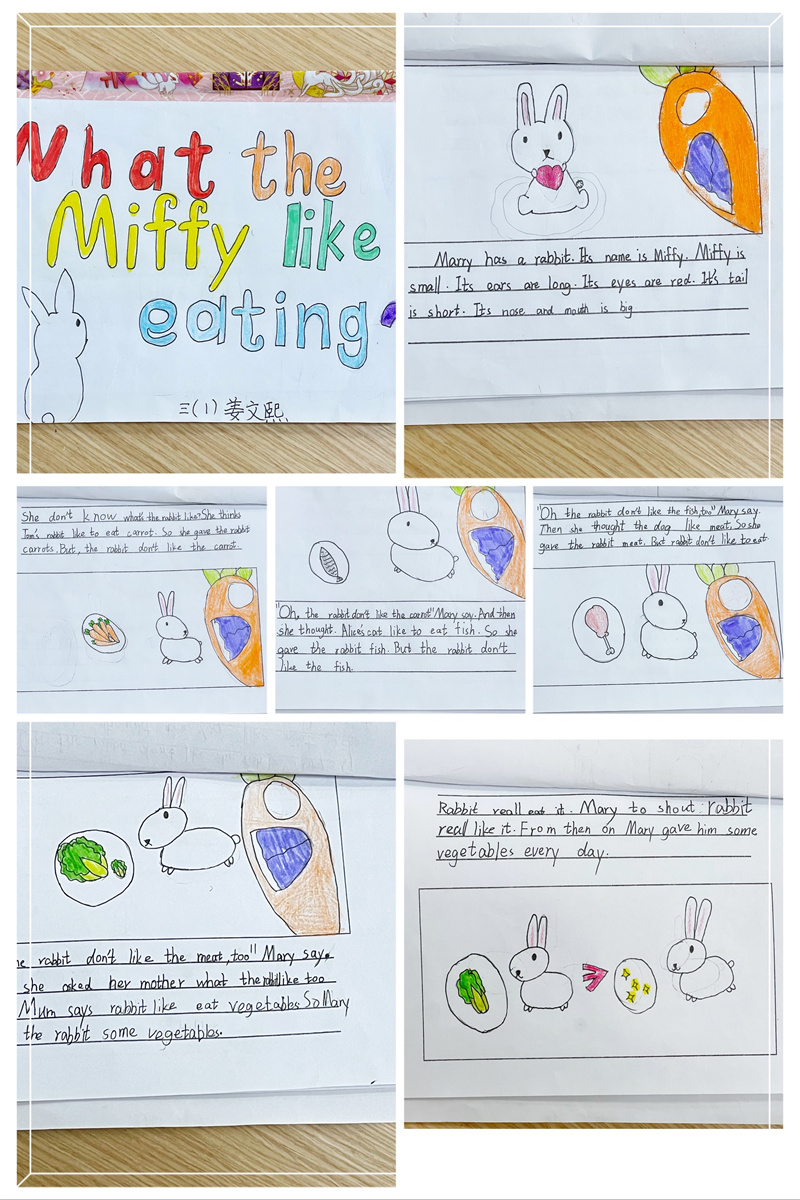 What the
Miffy like
eating
三(1) 姜文熙
Marry has a rabbit. Its name is Miffy. Miffy is
small. Its ears are long. Its eyes are red. It's tail
is short. Its nose and mouth is big
She don't know what's the rabbit like? She thinks
Tom's rabbit like to eat carrot. So she gave the rabbit
carrots. But, the rabbit don't like the carrot.
"Oh, the rabbit don't like the carrot" Mary say. And then
she thought. Alice's cat like to eat fish. So she
gave the rabbit fish. But the rabbit don't
like the fish.
"Oh the rabbit don't like the fish, too" Mary say.
Then she thought the dog like meat. So she
gave the rabbit meat. But rabbit don't like to eat.
rabbit don't like the meat, too" Mary say.
she asked her mother what the rabbit like too
Mum says rabbit like eat vegetables. So Mary
the rabbit some vegetables.
Rabbit reall eat it. Mary to shout: rabbit
reall like it. From then on Mary gave him some
vegetables every day.